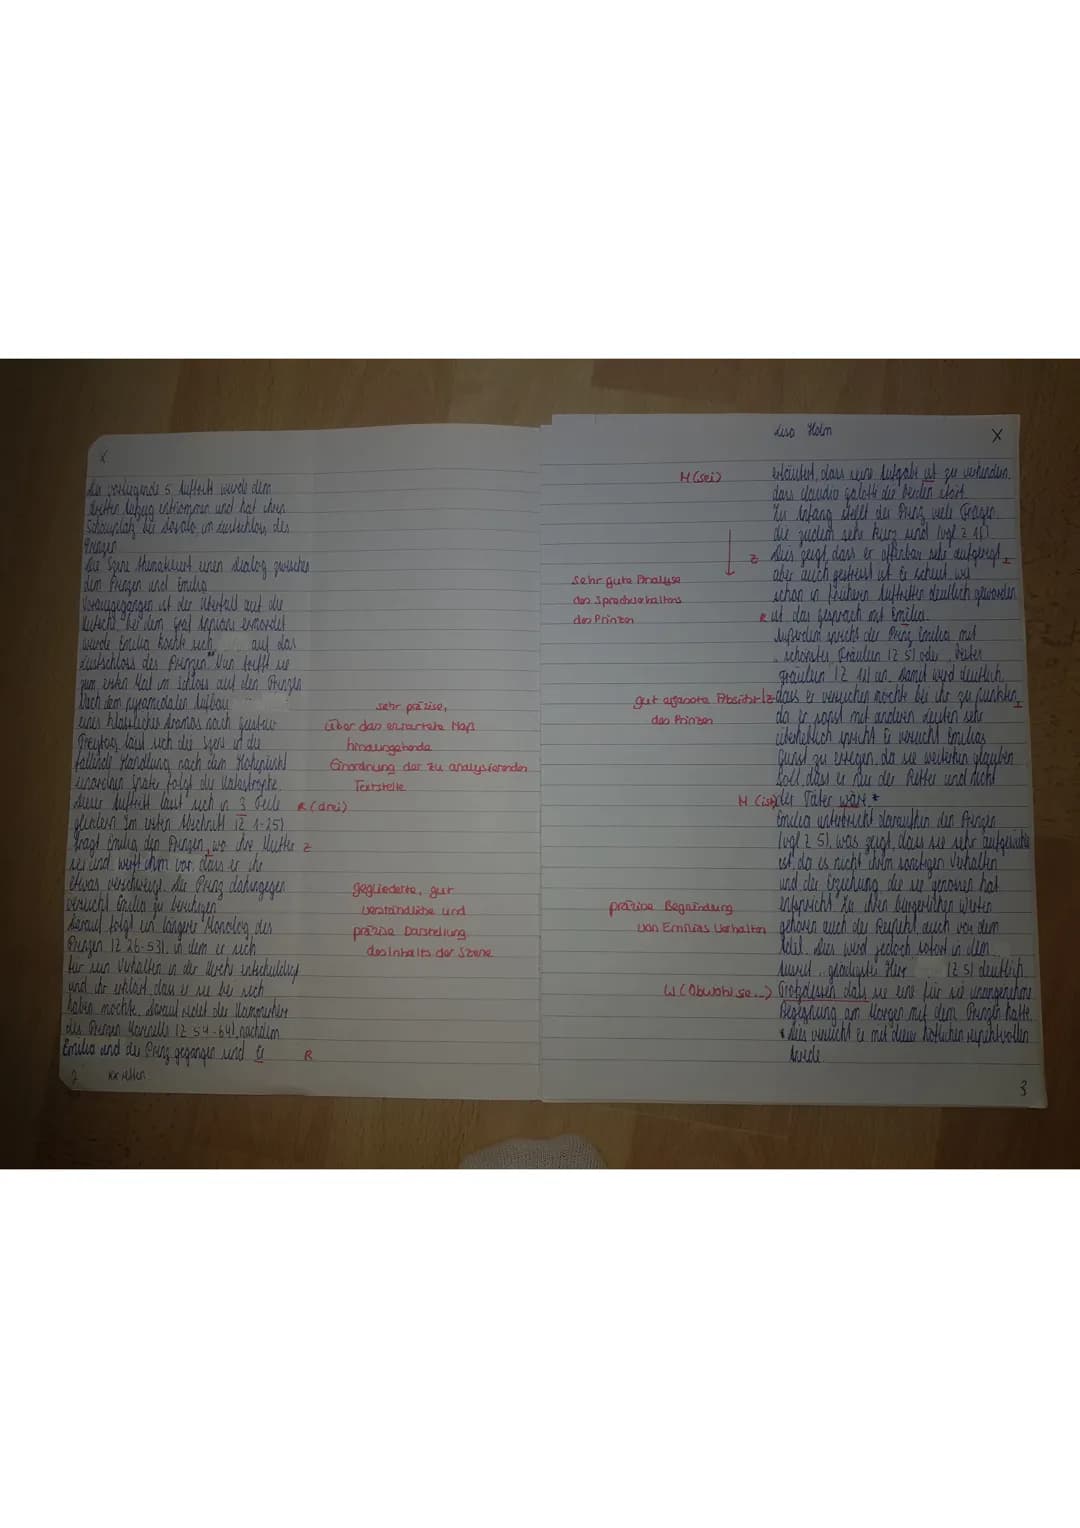 x
Die vorliegende 5 Auftritt wurde dem
dritten Aufzug entnommen und hat ihren
Schauplatz bei Dosalo im Lustschloss des
Prinzen
Die Szene thematisiert einen Dialog zwischen
dem Prinzen und Emilia
Vorausgegangen ist der Überfall auf die
Kutsche, bei dem Graf Appiani ermordet
wurde Emilia auf das
Lustschloss des Prinzen. Nun trifft sie
zum ersten Mal im Schloss auf den Prinzen
Nach dem pyramidalen Aufbau
eines klassisches Dramas nach Gustav
Freytag lässt sich die Szene in die
fallende Handlung nach dem Höhepunkt
einordnen Später folgt die Katastrophe.
Dieser Auftritt lässt sich in 3 Teile
gliedern Im ersten Abschnitt (Z 1-25)
fragt Emilia den Prinzen, wo ihre Mutter
sei und wirft ihm vor, dass er ihr
etwas verschweigt. Der Prinz dahingegen
versucht Emilia zu beruhigen
Darauf folgt ein langer Monolog des
Prinzen (Z 26-53), in dem er sich
für sein Verhalten in der Kirche entschuldigt
und ihr erklärt, dass er sie bei sich
haben möchte. Darauf redet der Kammerherr
des Prinzen Marinelli (Z 54-64), nachdem
Emilia und der Prinz gegangen sind Er
2
sehr präzise,
über das erwartete Maß
hinausgehende
Einordnung der zu analysierenden
Textstelle
R (drei)
Z
gegliederte, gut
verständliche und
präzise Darstellung
des Inhalts der Szene
R
Lisa Holm
X
erläutert, dass seine Aufgabe ist zu verhindern,
dass Claudia Galotti die beiden stört
Zu Anfang stellt der Prinz viele Fragen,
die zudem sehr kurz sind (vgl Z 1f)
Dies zeigt, dass er offenbar sehr aufgeregt
aber auch gestresst ist Er scheut, wie
schon in frühern Auftritten deutlich geworden
ist das Gespräch mit Emilia.
Außerdem spricht der Prinz Emilia mit
„schönstes Fräulein (Z 5) oder „bestes
Fräulein (Z 11) an. Damit wird deutlich,
dass er versuchen möchte bei ihr zu punkten,
da er sonst mit anderen Leuten sehr
überheblich spricht Er versucht Emilias
Gunst zu erregen, da sie weiterhin glauben
soll, dass er nur der Retter und nicht
der Täter wäre *
Emilia unterbricht daraufhin den Prinzen
(vgl Z 5), was zeigt, dass sie sehr aufgewühlt
ist, da es nicht ihrem sonstigen Verhalten
und der Erziehung die sie genossen hat
entspricht Zu ihren bürgerlichen Werten
gehören auch der Respekt, auch vor dem
Adel. Dies wird jedoch sofort in dem
„gnädigster Herr (Z 5) deutlich.
Trotzdessen dass sie eine für sie unangenehme
Begegnung am Morgen mit dem Prinzen hatte
* Dies versucht er mit dieser höflichen respektvollen
Anrede
3
M (sei)
Z
sehr gute Analyse
des Sprachverhaltens
des Prinzen
R
gut erfasste Absicht
des Prinzen
Z
M (ist)
präzise Begründung
von Emilias Verhalten
W (Obwohl sie...)